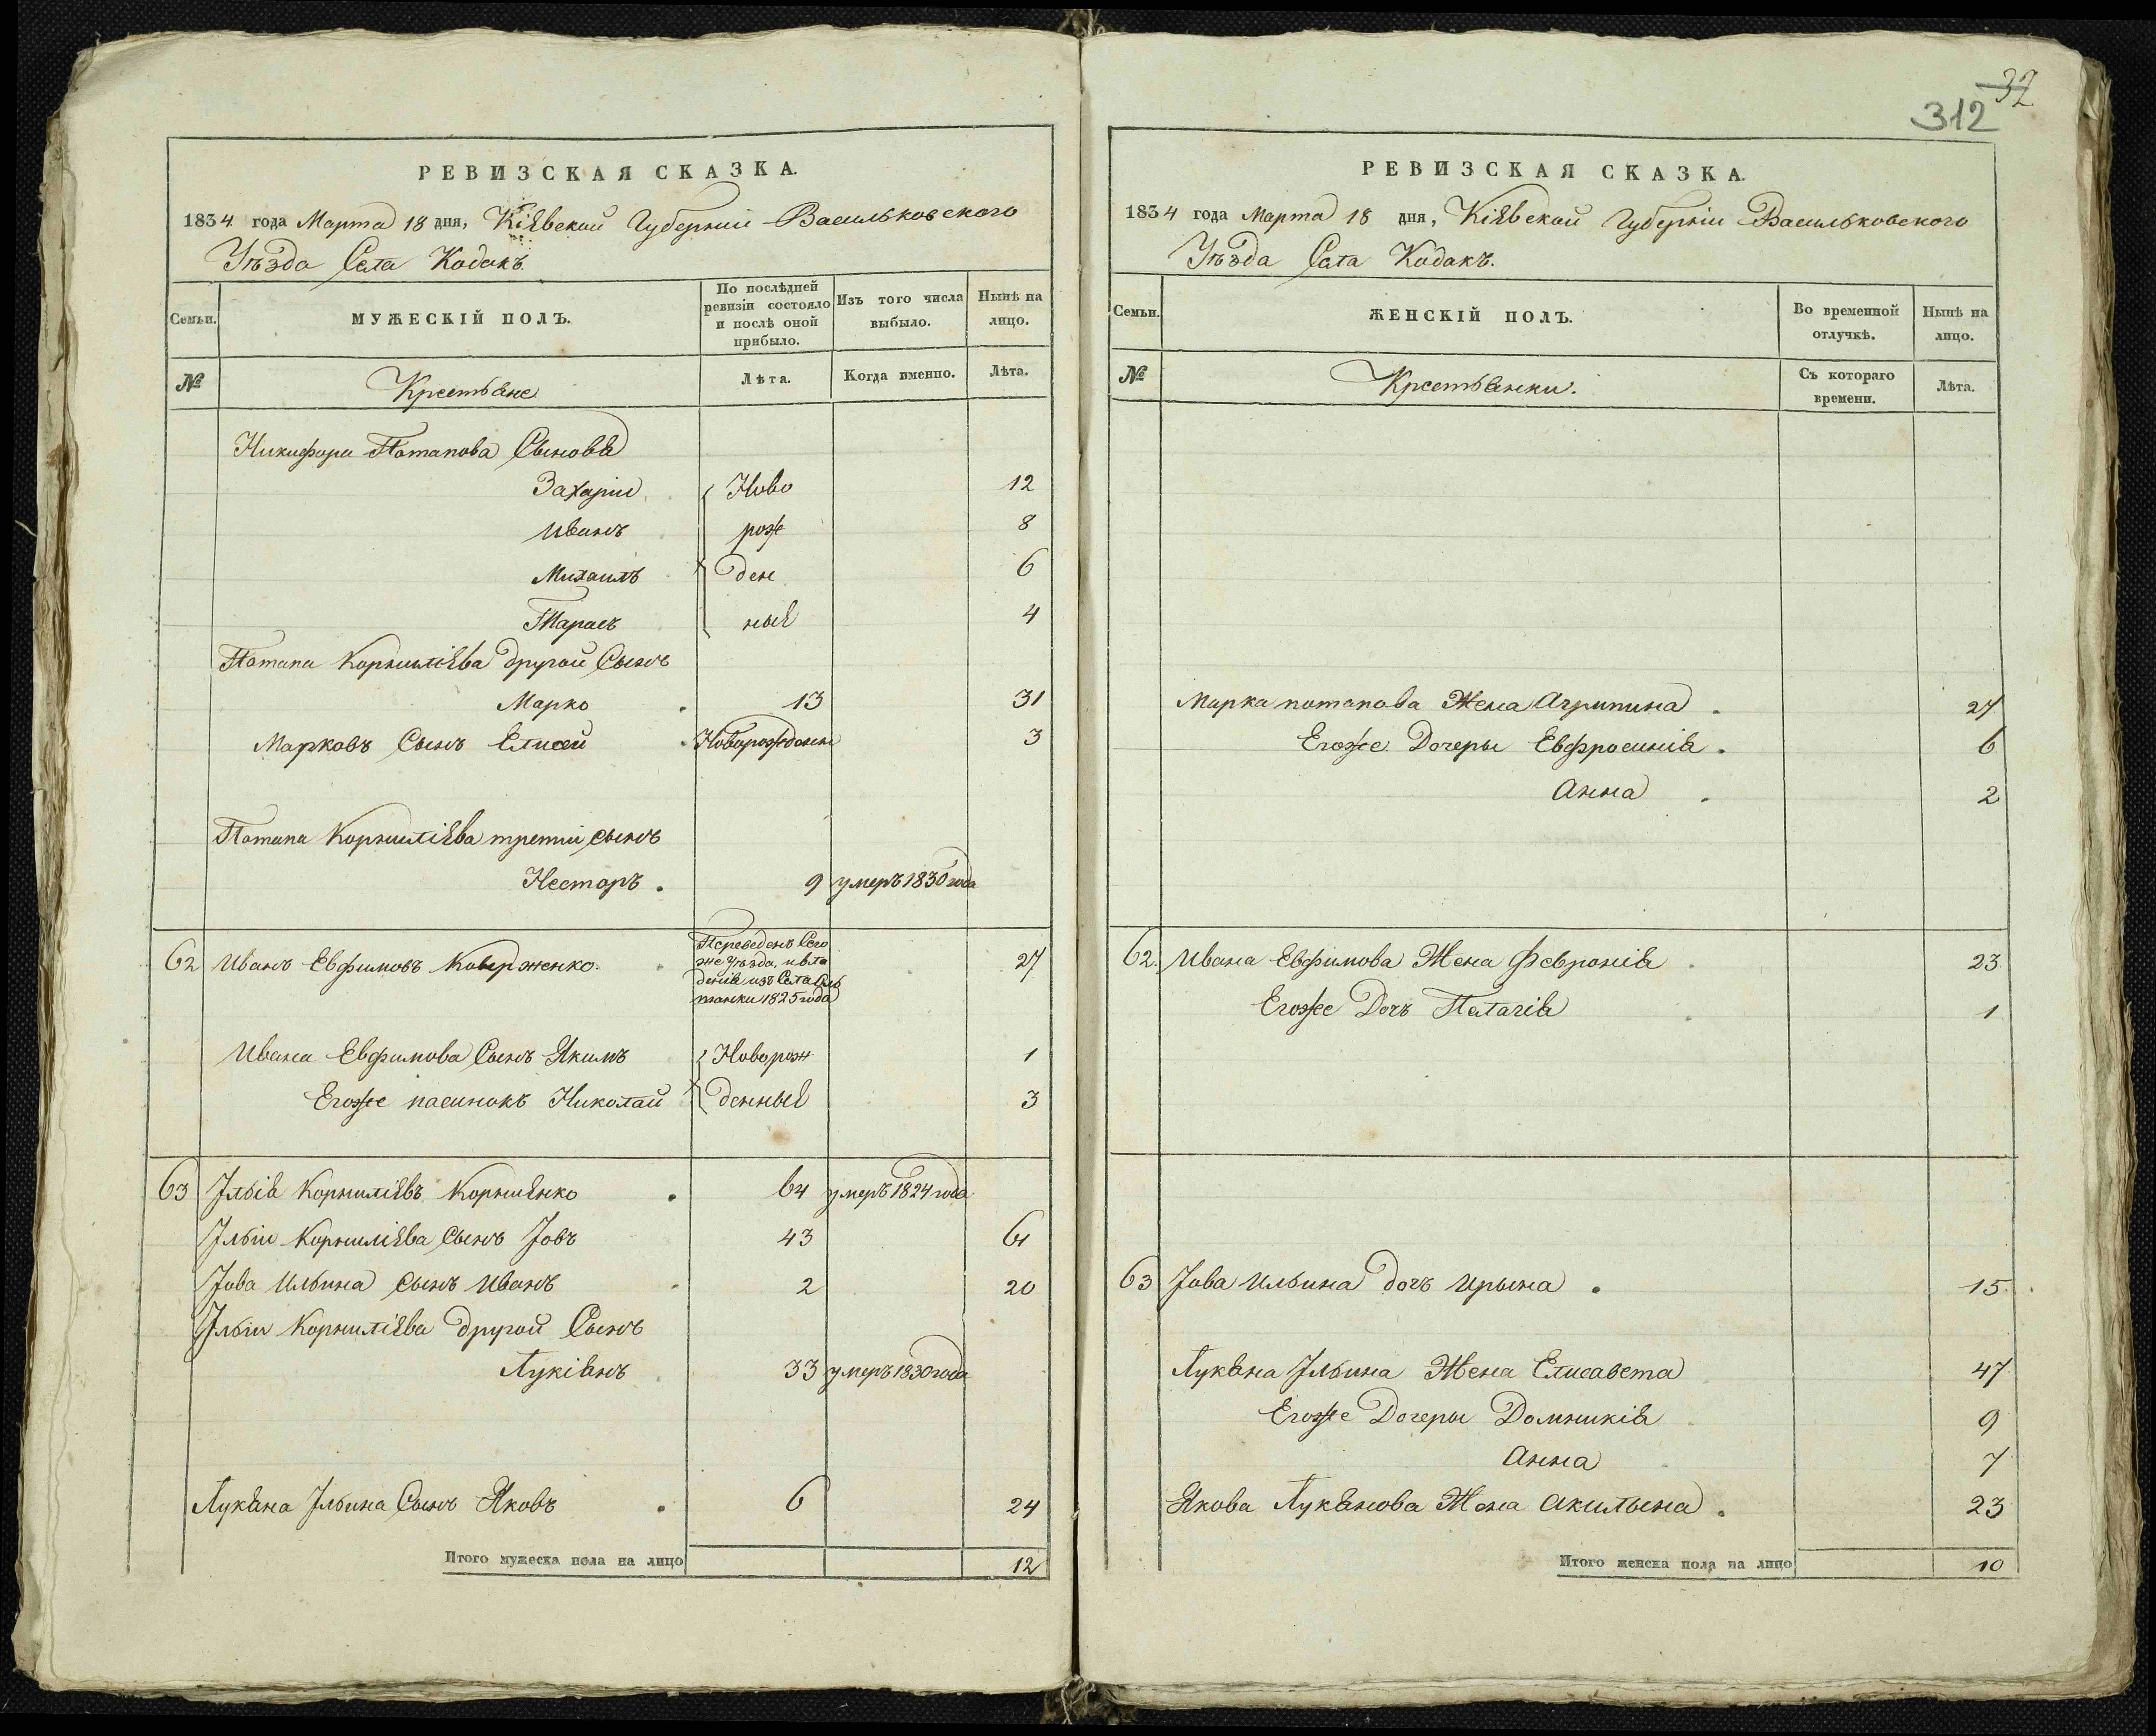 РЕВИЗСКАЯ СКАЗКА.
1834 года Марта 18 дня, Кіевской Губерніи Васильковского
Уѣзда Села Кодакъ
Семьи.
МУЖЕСКІЙ ПОЛЪ.
По послѣдней ревизіи состояло и послѣ оной прибыло.
Изъ того числа выбыло.
Нынѣ на лицо.
№
Крестьяне
Лѣта.
Когда именно.
Лѣта.
Никифора Потапова Сыновья
Захарій Ново 12
Иванъ рож 8
Михаилъ ден 6
Тарасъ ные 4
Потапа Корниліева другой Сынъ
Марко 13 31
Марковъ Сынъ Елисей Новорожденны 3
Потапа Корниліева третій сынъ
Несторъ. 9 умеръ 1830 года
62 Иванъ Евфимовъ Коверженко. Переведенъ Сего же уѣзда, и вла дения изъ Села 1825 года 27
Ивана Евфимова Сынъ Якимъ Новорож 1
Егоже пасинокъ Николай денные 3
63 Ілья Корниліевъ Корніенко 64 умеръ 1824 года
Ільи Корниліева Сынъ Іовъ 43 61
Іова Ильина сынъ Иванъ 2 20
Ільи Корниліева другой Сынъ
Лукіянъ 33 умеръ 1830 года
Лукяна Ільина Сынъ Яковъ 6 24
Итого мужеска пола на лицо 12
32
312
РЕВИЗСКАЯ СКАЗКА.
1834 года Марта 18 дня, Кіевской Губерніи Васильковского
Уѣзда Села Кодакъ.
Семьи.
ЖЕНСКІЙ ПОЛЪ.
Во временной отлучкѣ.
Нынѣ на лицо.
№
Крестьянки.
Съ котораго времени.
Лѣта.
Марка потапова Жена Агрипина 27
Егоже Дочеры Евфросинія 6
Анна 2
62. Ивана Евфимова Жена Февронія 23
Егоже Дочъ Пелагія 1
63 Іова Ильина дочъ Ирына 15
Лукяна Ільина Жена Елисавета 47
Егоже Дочеры Домникія 9
Анна 7
Якова Лукянова Жена Акилына 23
Итого женска пола на лицо 10